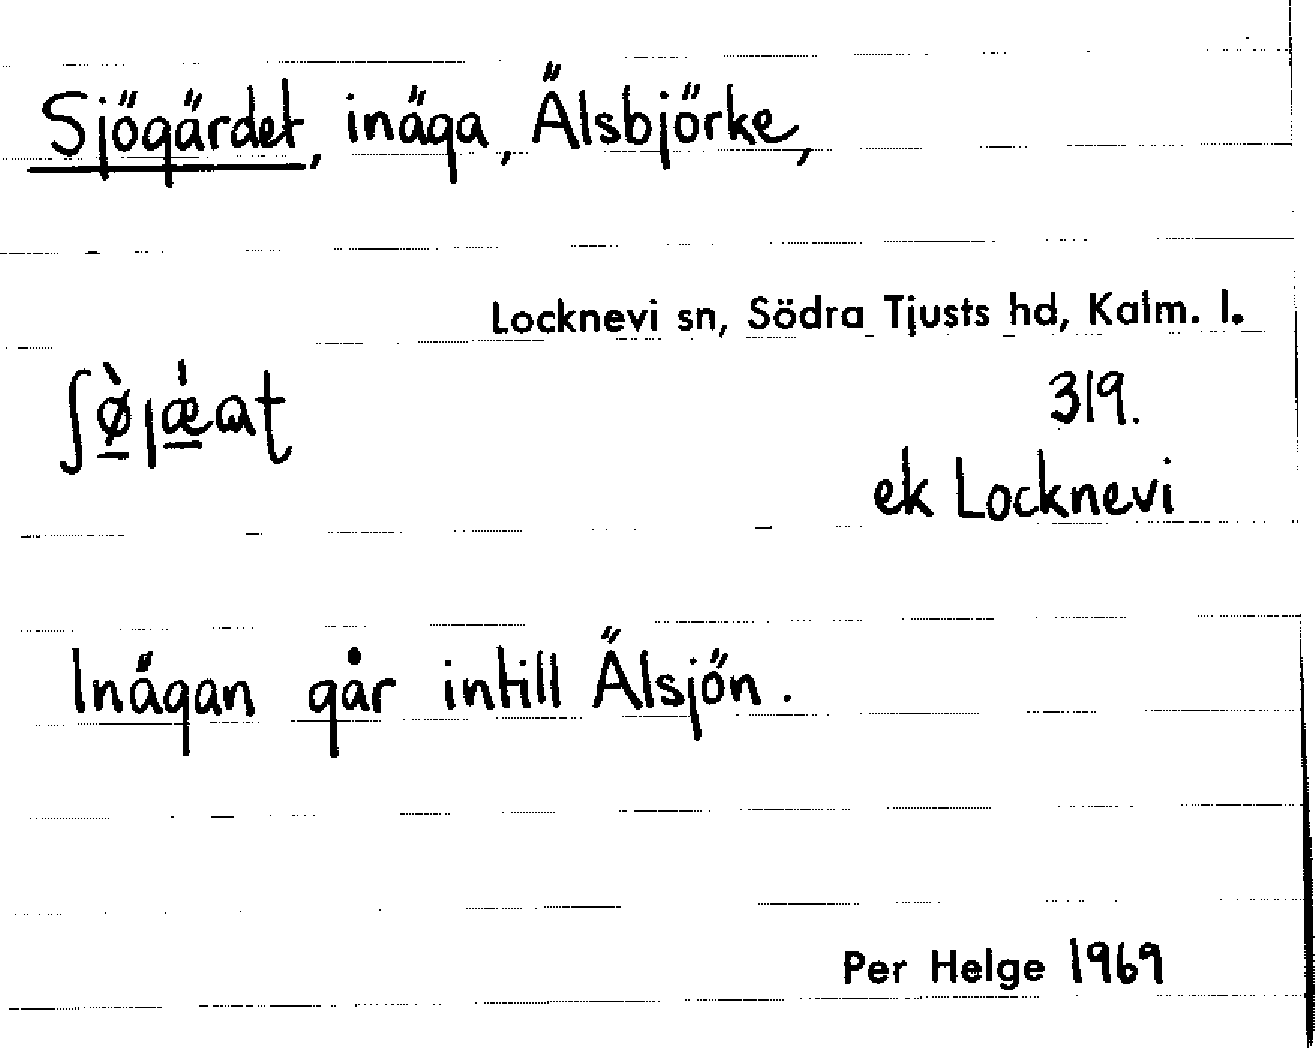 Sjögärdet, inäga, Älsbjörke,
Locknevi sn, Södra Tjusts hd, Kalm. l.
319.
ek Locknevi
Inägan går intill Älsjön.
Per Helge 1969